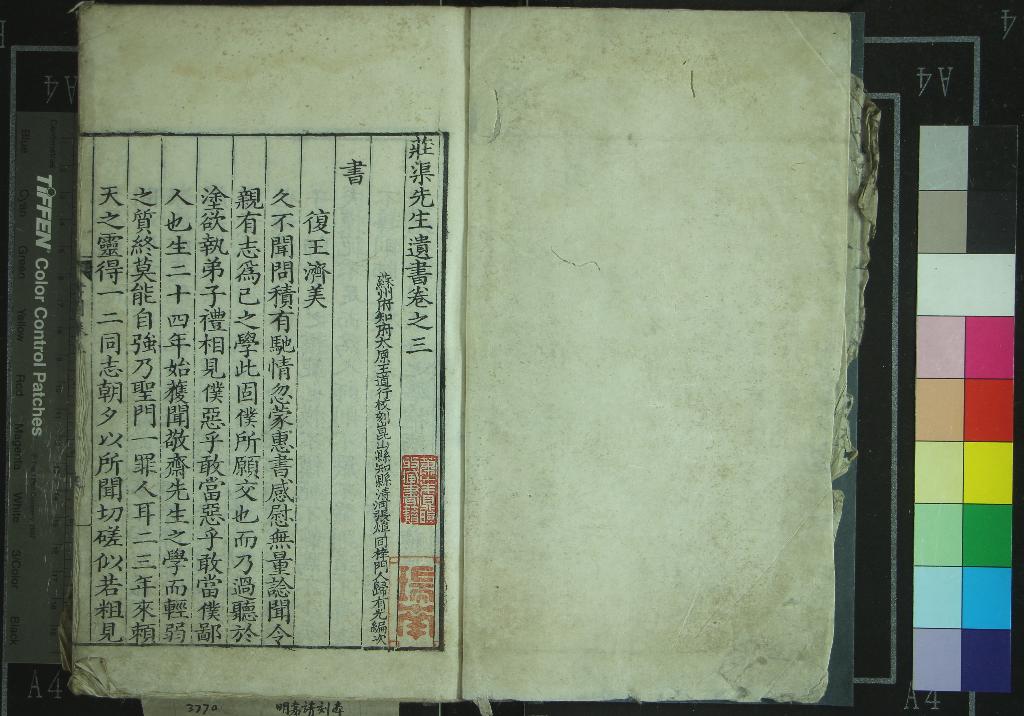 莊渠先生遺書卷之三
蘇州府知府太原王道行校刻崑山縣知縣清河張焯同梓門人歸有光編次
書
復王濟美
久不聞問積有馳情忽蒙惠書感慰無量諗聞令
親有志為己之學此固僕所願交也而乃過聽於
塗欲執弟子禮相見僕惡乎敢當惡乎敢當僕鄙
人也生二十四年始獲聞敬齋先生之學而輕弱
之質終莫能自強乃聖門一罪人耳二三年來賴
天之靈得一二同志朝夕以所聞切磋似若粗見
3770
明嘉靖刻本
TIFFEN Color Control Patches
Blue
Cyan
Green
Yellow
Red
Magenta
White
3/Color
Black
A4
A4
A4
A4